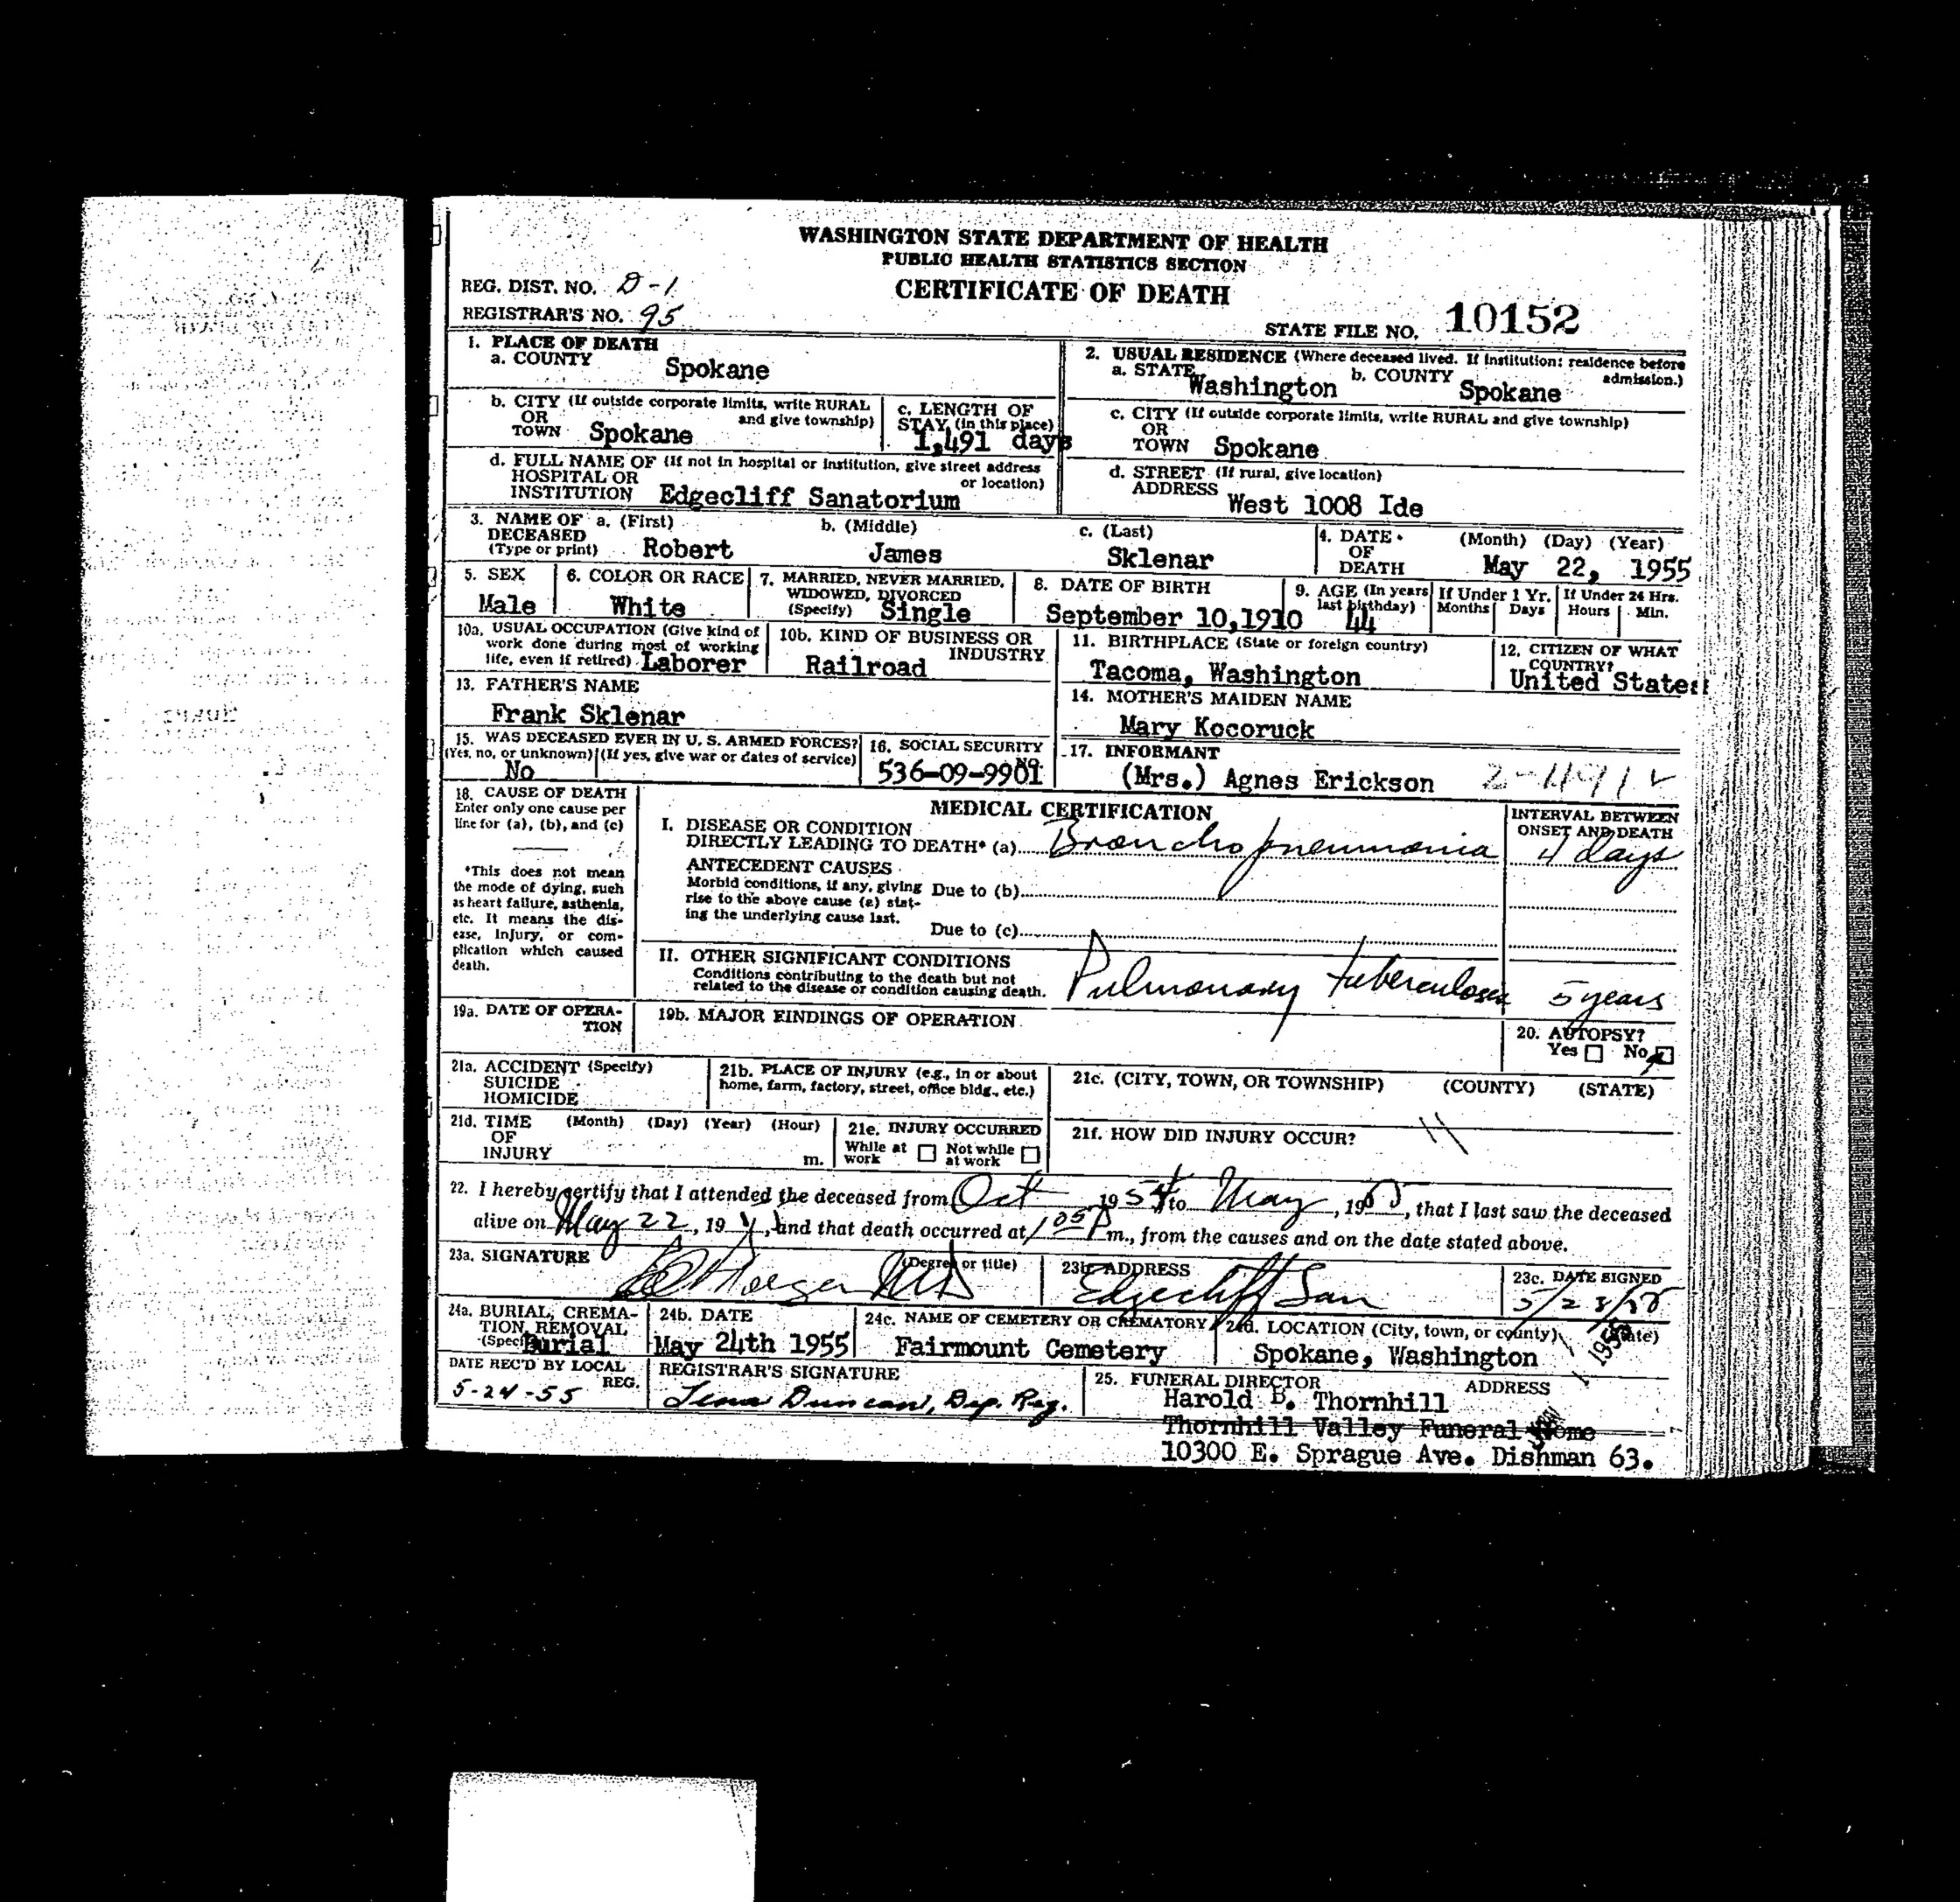 WASHINGTON STATE DEPARTMENT OF HEALTH
PUBLIC HEALTH STATISTICS SECTION
CERTIFICATE OF DEATH
REG. DIST. NO. D-1
REGISTRAR'S NO. 95
STATE FILE NO. 10152
1. PLACE OF DEATH
a. COUNTY Spokane
b. CITY (If outside corporate limits, write RURAL and give township)
OR TOWN Spokane
c. LENGTH OF STAY (in this place)
1,491 days
d. FULL NAME OF (If not in hospital or institution, give street address or location)
HOSPITAL OR INSTITUTION Edgecliff Sanatorium
2. USUAL RESIDENCE (Where deceased lived. If institution: residence before admission.)
a. STATE Washington b. COUNTY Spokane
c. CITY (If outside corporate limits, write RURAL and give township)
OR TOWN Spokane
d. STREET (If rural, give location)
ADDRESS West 1008 Ide
3. NAME OF DECEASED (Type or print) a. (First) b. (Middle) c. (Last)
Robert James Sklenar
4. DATE OF DEATH (Month) (Day) (Year)
May 22, 1955
5. SEX
Male
6. COLOR OR RACE
White
7. MARRIED, NEVER MARRIED, WIDOWED, DIVORCED (Specify) Single
8. DATE OF BIRTH
September 10,1910
9. AGE (In years last birthday) 44
If Under 1 Yr. Months Days
If Under 24 Hrs. Hours Min.
10a. USUAL OCCUPATION (Give kind of work done during most of working life, even if retired) Laborer
10b. KIND OF BUSINESS OR INDUSTRY
Railroad
11. BIRTHPLACE (State or foreign country)
Tacoma, Washington
12. CITIZEN OF WHAT COUNTRY?
United States
13. FATHER'S NAME
Frank Sklenar
14. MOTHER'S MAIDEN NAME
Mary Kocoruck
15. WAS DECEASED EVER IN U. S. ARMED FORCES?
(Yes, no, or unknown) (If yes, give war or dates of service)
No
16. SOCIAL SECURITY NO.
536-09-9901
17. INFORMANT
(Mrs.) Agnes Erickson
18. CAUSE OF DEATH
Enter only one cause per line for (a), (b), and (c)
*This does not mean the mode of dying, such as heart failure, asthenia, etc. It means the disease, injury, or complication which caused death.
MEDICAL CERTIFICATION
INTERVAL BETWEEN ONSET AND DEATH
I. DISEASE OR CONDITION
DIRECTLY LEADING TO DEATH* (a) Bronchopneumonia 4 days
ANTECEDENT CAUSES
Morbid conditions, if any, giving rise to the above cause (a) stating the underlying cause last.
Due to (b)
Due to (c)
II. OTHER SIGNIFICANT CONDITIONS
Conditions contributing to the death but not related to the disease or condition causing death.
Pulmonary tuberculosis 5 years
19a. DATE OF OPERATION
19b. MAJOR FINDINGS OF OPERATION
20. AUTOPSY?
Yes No
21a. ACCIDENT (Specify)
SUICIDE
HOMICIDE
21b. PLACE OF INJURY (e.g., in or about home, farm, factory, street, office bldg., etc.)
21c. (CITY, TOWN, OR TOWNSHIP) (COUNTY) (STATE)
21d. TIME OF INJURY (Month) (Day) (Year) (Hour) m.
21e. INJURY OCCURRED
While at work Not while at work
21f. HOW DID INJURY OCCUR?
22. I hereby certify that I attended the deceased from Oct 1954 to May, 195, that I last saw the deceased
alive on May 22, 19, and that death occurred at 1 05 P m., from the causes and on the date stated above.
23a. SIGNATURE (Degree or title) MD
23b. ADDRESS
Edgecliff San
23c. DATE SIGNED
5/23/55
24a. BURIAL, CREMATION, REMOVAL (Specify) Burial
24b. DATE
May 24th 1955
24c. NAME OF CEMETERY OR CREMATORY
Fairmount Cemetery
24d. LOCATION (City, town, or county) (State)
Spokane, Washington
1955
DATE REC'D BY LOCAL REG.
5-24-55
REGISTRAR'S SIGNATURE
Lena Duncan, Dep. Reg.
25. FUNERAL DIRECTOR ADDRESS
Harold B. Thornhill
Thornhill Valley Funeral Home
10300 E. Sprague Ave. Dishman 63.